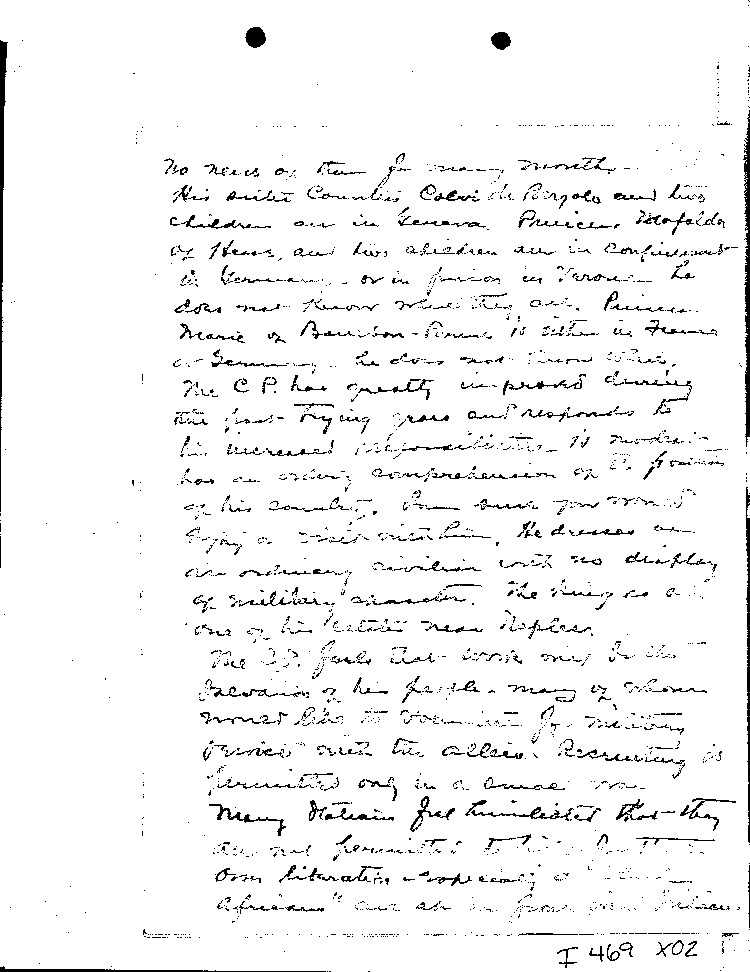 No news of them for many months.
His sister Countess Calvi di Bergolo and two
children are in Geneva. Princess Mafalda
of Hesse, and two children are in confinement
in Germany - or in prison in Verona - he
does not know where they are. Princess
Marie of Bourbon-Parma is either in France
or Germany - he does not know where.
The C P. has greatly improved during
the past trying years and responds to
his increased responsibilities - is modest -
has an comprehension of the position
of his country. I am sure you would
enjoy a visit with him. He dresses as
an ordinary civilian with no display
of military character. The King is at
one of his estates near Naples.
The C.P. feels that work may be the
salvation of his people - many of whom
would like to volunteer for military
service with the allies. Recruiting is
permitted only in a small way
Many Italians feel humiliated that they
are not permitted to for their
own liberation - especially as
Africans" are at the front
I 469 X02